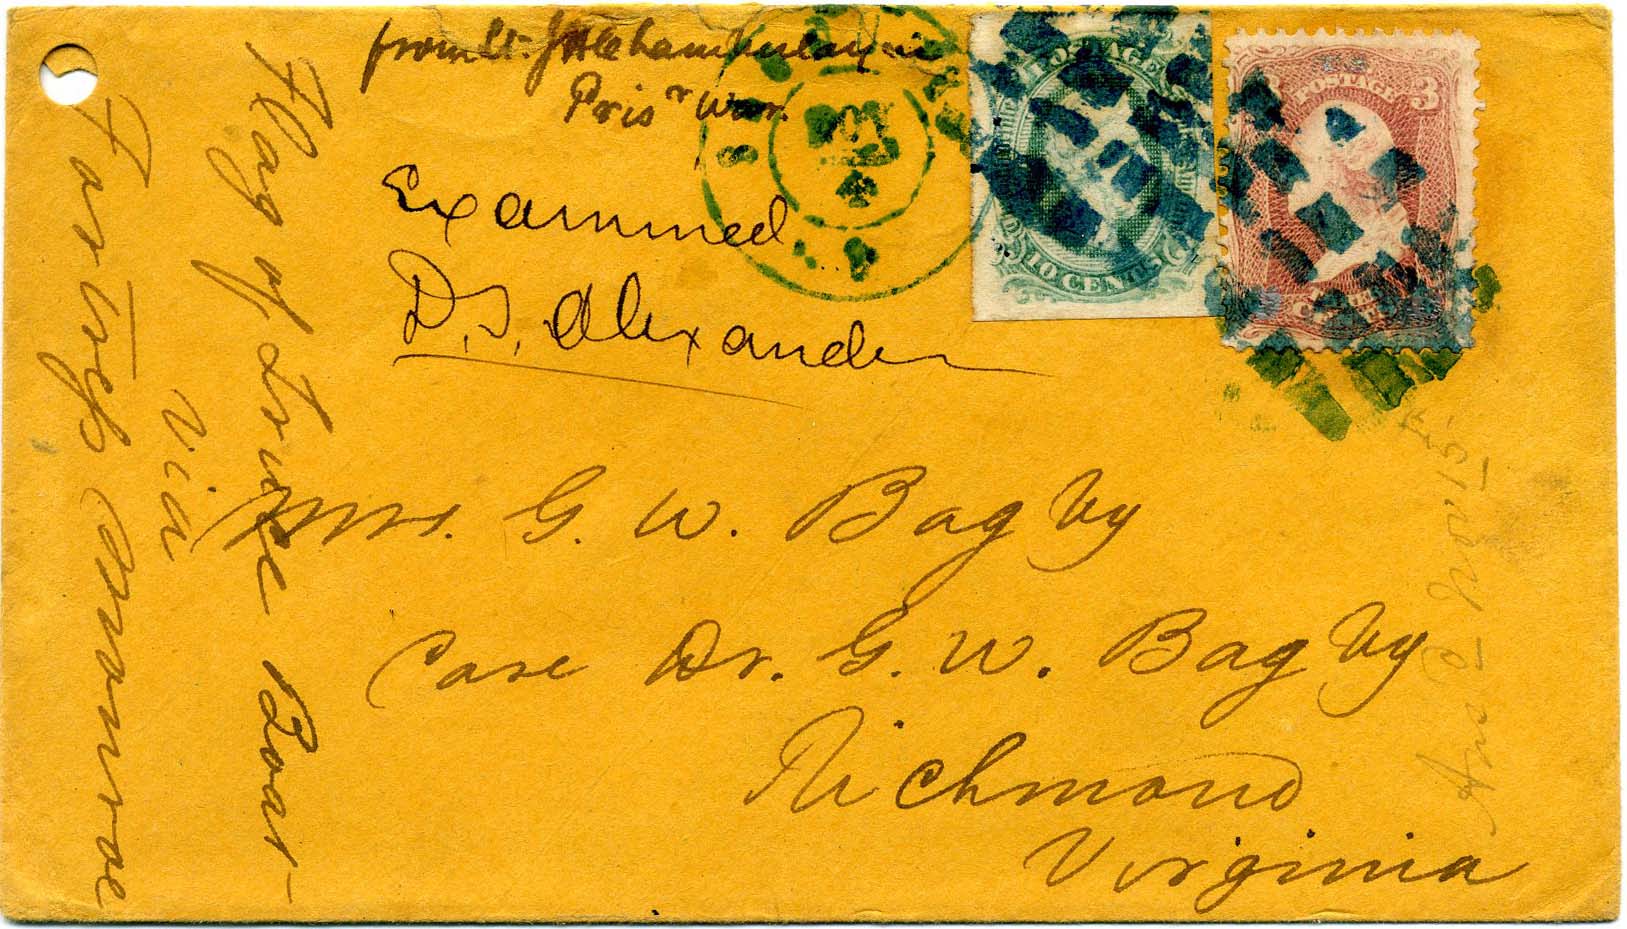 from Lt. J H Chamberlayne
Prisr War.
Examined
D. S. Alexander
Mrs. G. W. Bagby
Care Dr. G. W. Bagby
Richmond
Virginia
Flag of Truce Boat
via
Fortress Monroe
Ansd Nov. 15.
POSTAGE
10 CENTS
U S
POSTAGE
3